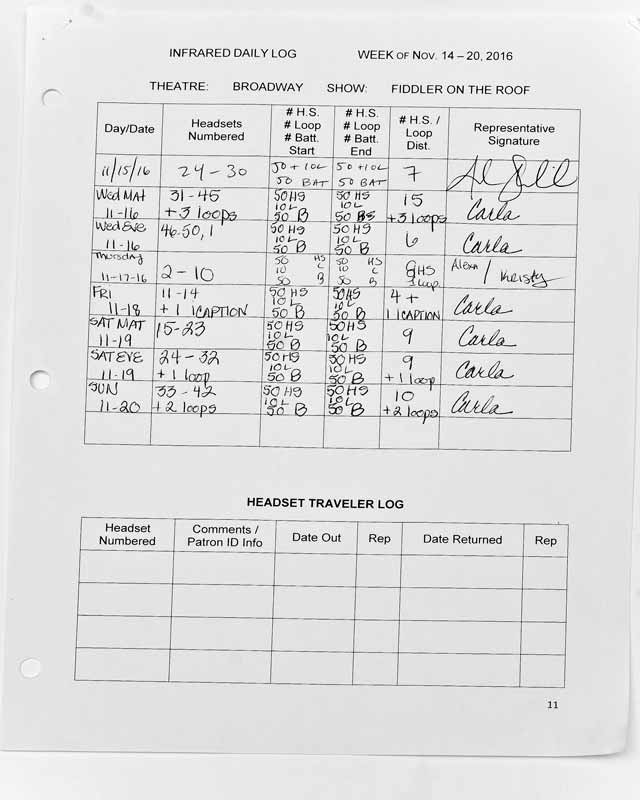 INFRARED DAILY LOG WEEK OF NOV. 14 – 20, 2016
THEATRE: BROADWAY SHOW: FIDDLER ON THE ROOF
Day/Date
Headsets
Numbered
# H.S.
# Loop
# Batt.
Start
# H.S.
# Loop
# Batt.
End
# H.S. /
Loop
Dist.
Representative
Signature
11/15/16
24 - 30
50 + 10L
50 BAT
50 + 10L
50 BAT
7
Wed MAT
11-16
31 - 45
+ 3 loops
50 HS
10 L
50 B
50 HS
10 L
50 BS
15
+3 loops
Carla
Wed EVE
11-16
46-50, 1
50 HS
10 L
50 B
50 HS
10 L
50 B
6
Carla
Thursday
11-17-16
2 - 10
50 HS
10 L
50 B
50 HS
10 L
50 B
HS
loop
Alexa / Kristy
FRI
11-18
11-14
+ 1 1CAPTION
50 HS
10 L
50 B
50 HS
10 L
50 B
4 +
1 1CAPTION
Carla
SAT MAT
11-19
15-23
50 HS
10 L
50 B
50 HS
10 L
50 B
9
Carla
SAT EVE
11-19
24 - 32
+ 1 loop
50 HS
10 L
50 B
50 HS
10 L
50 B
9
+ 1 loop
Carla
SUN
11-20
33 - 42
+ 2 loops
50 HS
10 L
50 B
50 HS
10 L
50 B
10
+ 2 loops
Carla
HEADSET TRAVELER LOG
Headset
Numbered
Comments /
Patron ID Info
Date Out
Rep
Date Returned
Rep
11